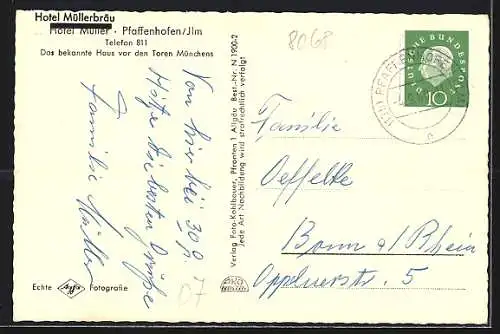 Hotel Müllerbräu
Hotel Müller · Pfaffenhofen/Jlm
Telefon 811
Das bekannte Haus vor den Toren Münchens
8068
DEUTSCHE BUNDESPOST
10
Von hier bei 30°
die besten Grüße
Familie Müller
Echte Agfa Fotografie
Verlag Foto-Kohlbauer, Pfronten 1 Allgäu Best.-Nr. N 1900-2
Jede Art Nachbildung wird strafrechtlich verfolgt
Familie
Oeffelke
Bonn a/Rhein
Oppelnerstr. 5
07